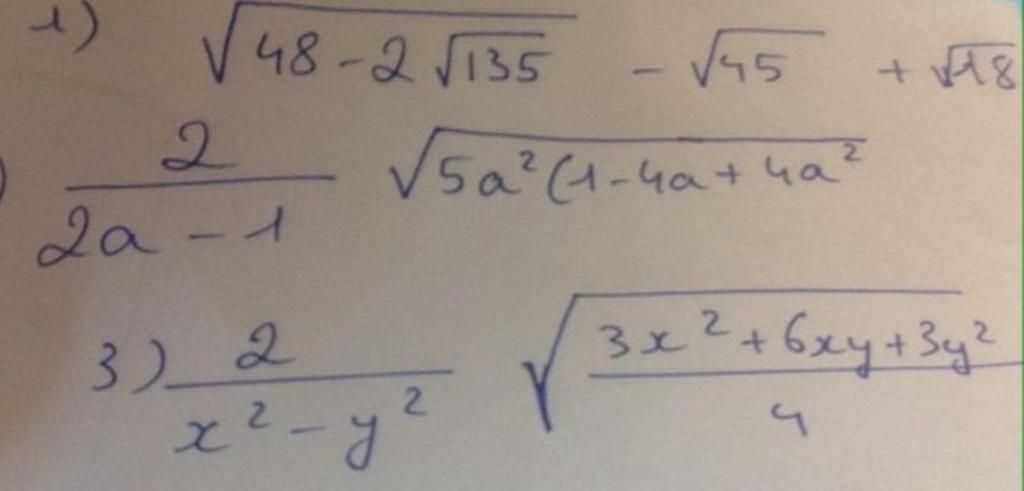 1) √(48-2√135) - √45 + √18
) 2/(2a-1) √(5a²(1-4a+4a²
3) 2/(x²-y²) √((3x²+6xy+3y²)/4)